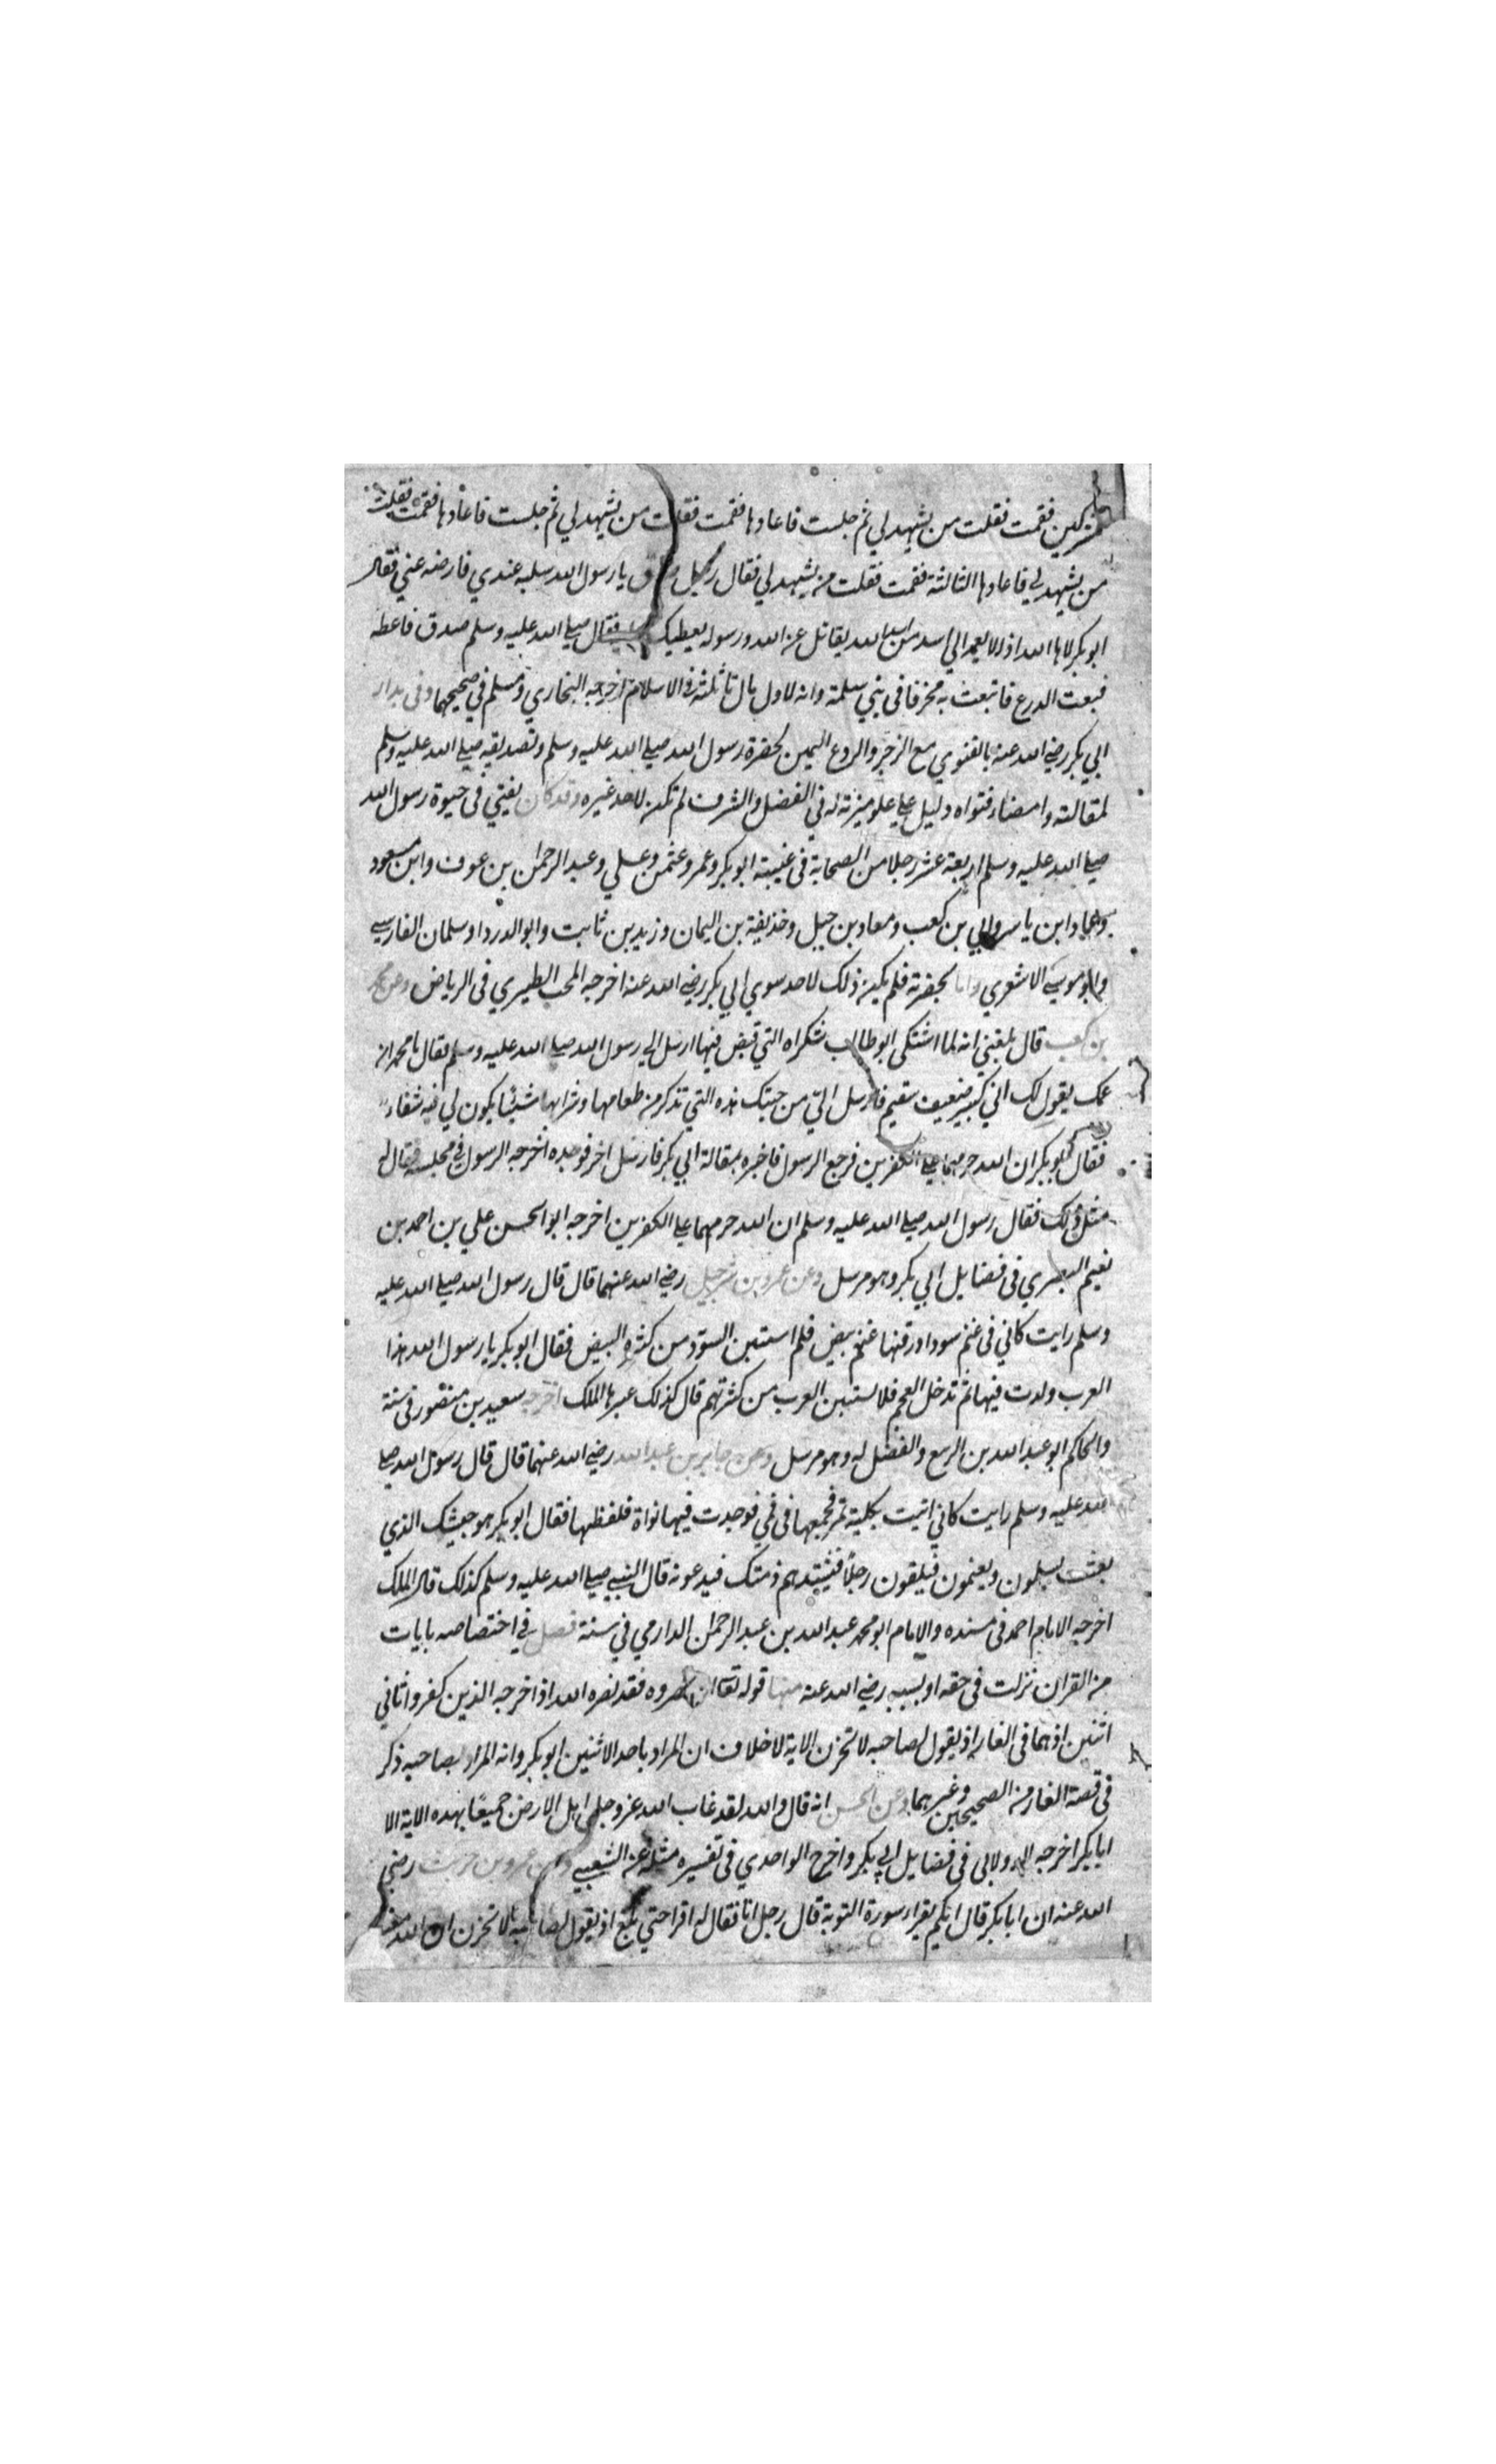 فقمت فقلت من يشهد لي ثم جلست فاعادها فقمت فقلت من يشهد لي ثم جلست فاعادها فقمت فقلت
من يشهد لي فاعادها الثالثة فقمت فقلت من يشهد لي فقال رجل يا رسول الله سلبه عندي فارضه عني فقال
ابو بكر لاها الله اذ لا يعمد الي اسد من اسد الله يقاتل عن الله ورسوله يعطيك فقال صلي الله عليه وسلم صدق فاعطه
فبعت الدرع فابتعت به مخرفا في بني سلمة وانه لاول مال تاثلته في الاسلام اخرجه البخاري ومسلم في صحيحهما وفي بدار
ابي بكر رضي الله عنه بالفتوي مع الزجر والردع اليمين بحضرة رسول الله صلي الله عليه وسلم وتصديقه صلي الله عليه وسلم
لمقالته وامضاء فتواه دليل علي علو منزلته في الفضل والشرف لم تكن لاحد غيره وقد كان يفتي في حيوة رسول الله
صلي الله عليه وسلم اربعة عشر رجلا من الصحابة في غيبته ابو بكر وعمر وعثمن وعلي وعبد الرحمن بن عوف وابن مسعود
وعمار ابن ياسر وابي بن كعب ومعاد بن جبل وحذيفة بن اليمان وزيد بن ثابت وابو الدردا وسلمان الفارسي
وابو موسي الاشعري واما بحضرته فلم يكن ذلك لاحد سوي ابي بكر رضي الله عنه اخرجه المحب الطبري في الرياض وعن محمد
بن كعب قال بلغني انه لما اشتكي ابو طالب شكواه التي قبض فيها ارسل الي رسول الله صلي الله عليه وسلم فقال يا محمد ان
عمك يقول لك اني كبير ضعيف سقيم فارسل الي من جنتك هذه التي تذكر من طعامها وشرابها شيئا يكون لي فيه شفاء
فقال ابو بكر ان الله حرمهما علي الكفرين فرجع الرسول فاخبره بمقالة ابي بكر فارسل اخر فوجده اخرجه الرسول في مجلسه فقال له
مثل ذلك فقال رسول الله صلي الله عليه وسلم ان الله حرمهما علي الكفرين اخرجه ابو الحسن علي بن احمد بن
نعيم البصري في فضايل ابي بكر وهو مرسل وعن عمرو بن شرحبيل رضي الله عنهما قال قال رسول الله صلي الله عليه
وسلم رايت كاني في غنم سود اردفتها غنم بيض فلم استبن السود من كثرة البيض فقال ابو بكر يا رسول الله هذا
العرب ولدت فيها ثم تدخل العجم فلا تستبين العرب من كثرتهم قال كذلك عبرها الملك اخرجه سعيد بن منصور في سننه
والحاكم ابو عبد الله بن الربيع والفضل له وهو مرسل وعن جابر بن عبد الله رضي الله عنهما قال قال رسول الله صلي
الله عليه وسلم رايت كاني اتيت بكلية تمر فجمعها في فمي فوجدت فيها نواة فلفظتها فقال ابو بكر هو جيشك الذي
بعثت يسلمون ويغنمون فيلقون رجلا فينشدهم ذمتك فيدعونه قال النبي صلي الله عليه وسلم كذلك قال الملك
اخرجه الامام احمد في مسنده والامام ابو محمد عبد الله بن عبد الرحمن الدارمي في سننه فصل في اختصاصه بايات
من القران نزلت في حقه او بسببه رضي الله عنه منها قوله تعا الا تنصروه فقد نصره الله اذ اخرجه الذين كفروا ثاني
اثنين اذ هما في الغار اذ يقول لصاحبه لا تحزن الاية لا خلاف ان المراد باحد الاثنين ابو بكر وانه المراد بصاحبه ذكر
في قصة الغار من الصحيحين وغيرهما وعن الحسن انه قال والله لقد عاب الله عز وجل اهل الارض جميعا بهذه الاية الا
ابا بكر اخرجه الدولابي في فضايل ابي بكر واخرج الواحدي في تفسيره مثله عن الشعبي وعن عمرو بن حريث رضي
الله عنه ان ابا بكر قال ايكم يقرا سورة التوبة قال رجل انا فقال له اقرا حتي بلغ اذ يقول لصاحبه لا تحزن ان الله معنا